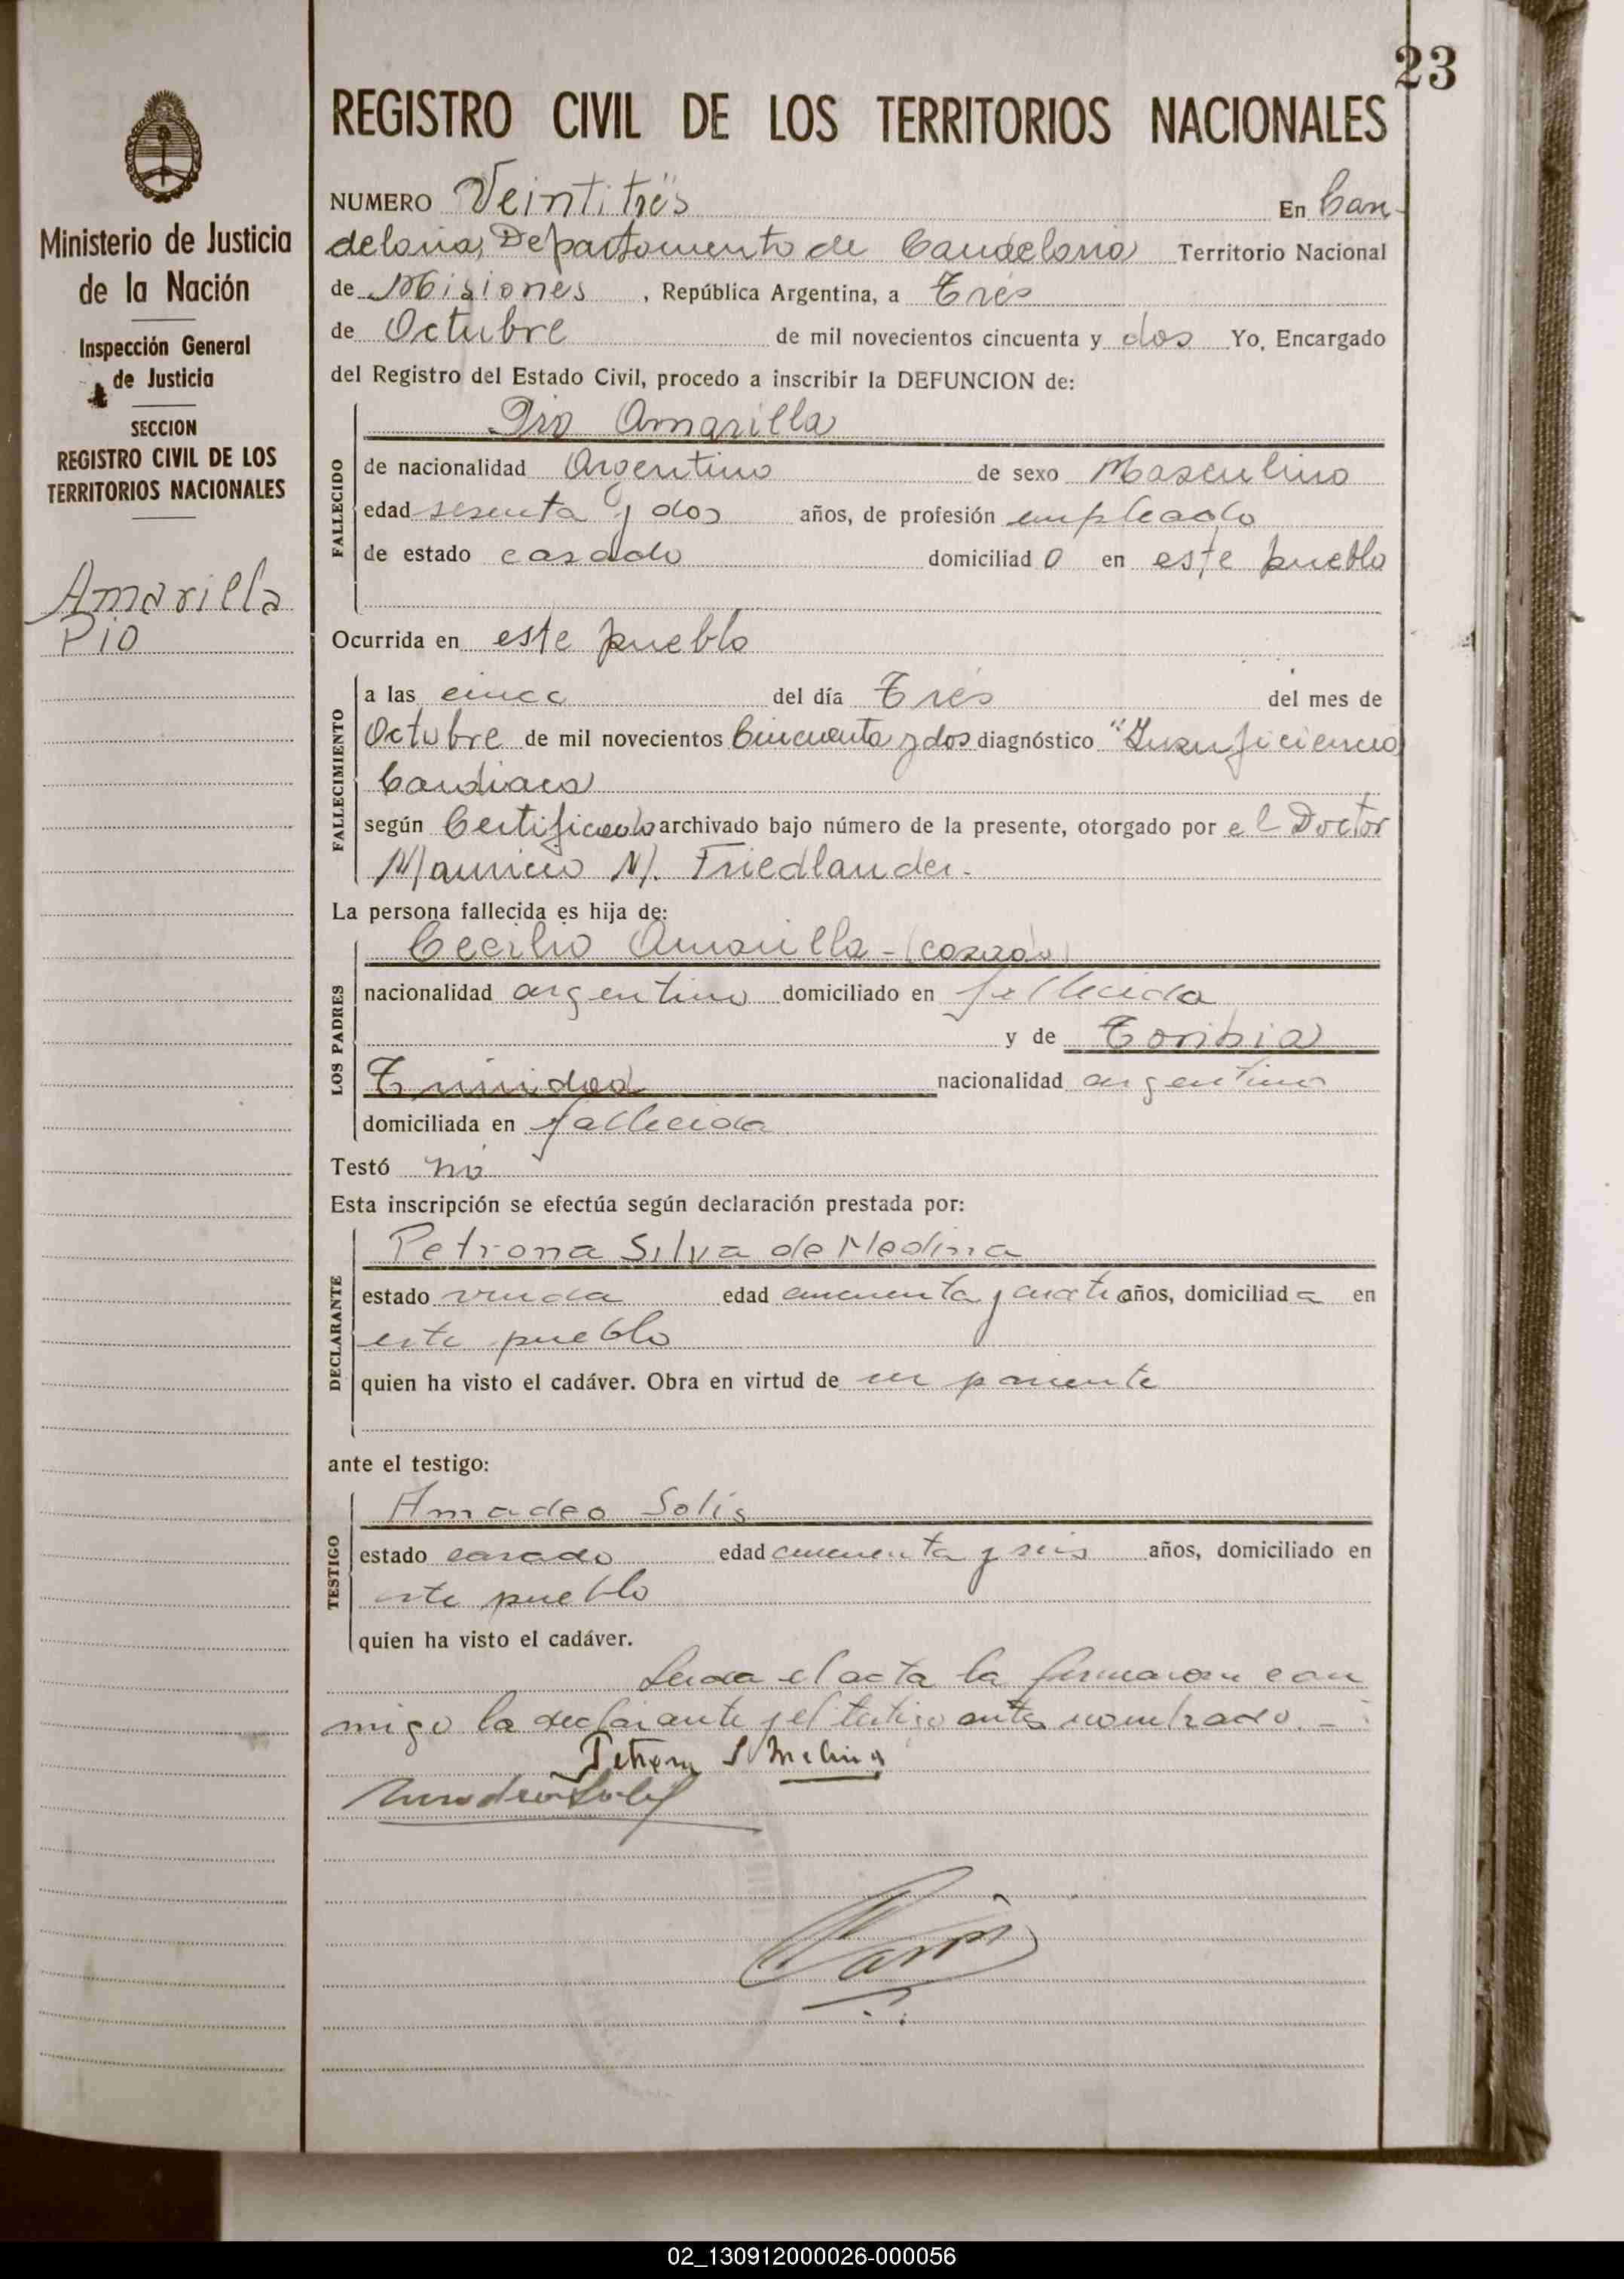 23
REGISTRO CIVIL DE LOS TERRITORIOS NACIONALES
Ministerio de Justicia
de la Nación
Inspección General
de Justicia
SECCION
REGISTRO CIVIL DE LOS
TERRITORIOS NACIONALES
Amarilla
Pio
NUMERO Veintitrés En Can-
delaria, Departamento de Candelaria Territorio Nacional
de Misiones, República Argentina, a Tres
de Octubre de mil novecientos cincuenta y dos Yo, Encargado
del Registro del Estado Civil, procedo a inscribir la DEFUNCION de:
FALLECIDO
Pio Amarilla
de nacionalidad Argentino de sexo Masculino
edad sesenta y dos años, de profesión empleado
de estado casado domiciliado en este pueblo
Ocurrida en este pueblo
FALLECIMIENTO
a las cinco del día Tres del mes de
Octubre de mil novecientos Cincuenta y dos diagnóstico "Insuficiencia
Cardiaca
según Certificado archivado bajo número de la presente, otorgado por el Doctor
Mauricio M. Friedlander.
La persona fallecida es hija de:
LOS PADRES
Cecilio Amarilla - (casado)
nacionalidad argentino domiciliado en fallecida
y de Toribia
Trinidad nacionalidad argentina
domiciliada en fallecida
Testó no
Esta inscripción se efectúa según declaración prestada por:
DECLARANTE
Petrona Silva de Medina
estado viuda edad cincuenta y cuatro años, domiciliada en
este pueblo
quien ha visto el cadáver. Obra en virtud de ser pariente
ante el testigo:
TESTIGO
Amadeo Solis
estado casado edad cincuenta y seis años, domiciliado en
este pueblo
quien ha visto el cadáver.
Leida el acta la firmaron con
migo la declarante y el testigo antes nombrado. -
Petrona S Medina
Amadeo Solis
02_130912000026-000056